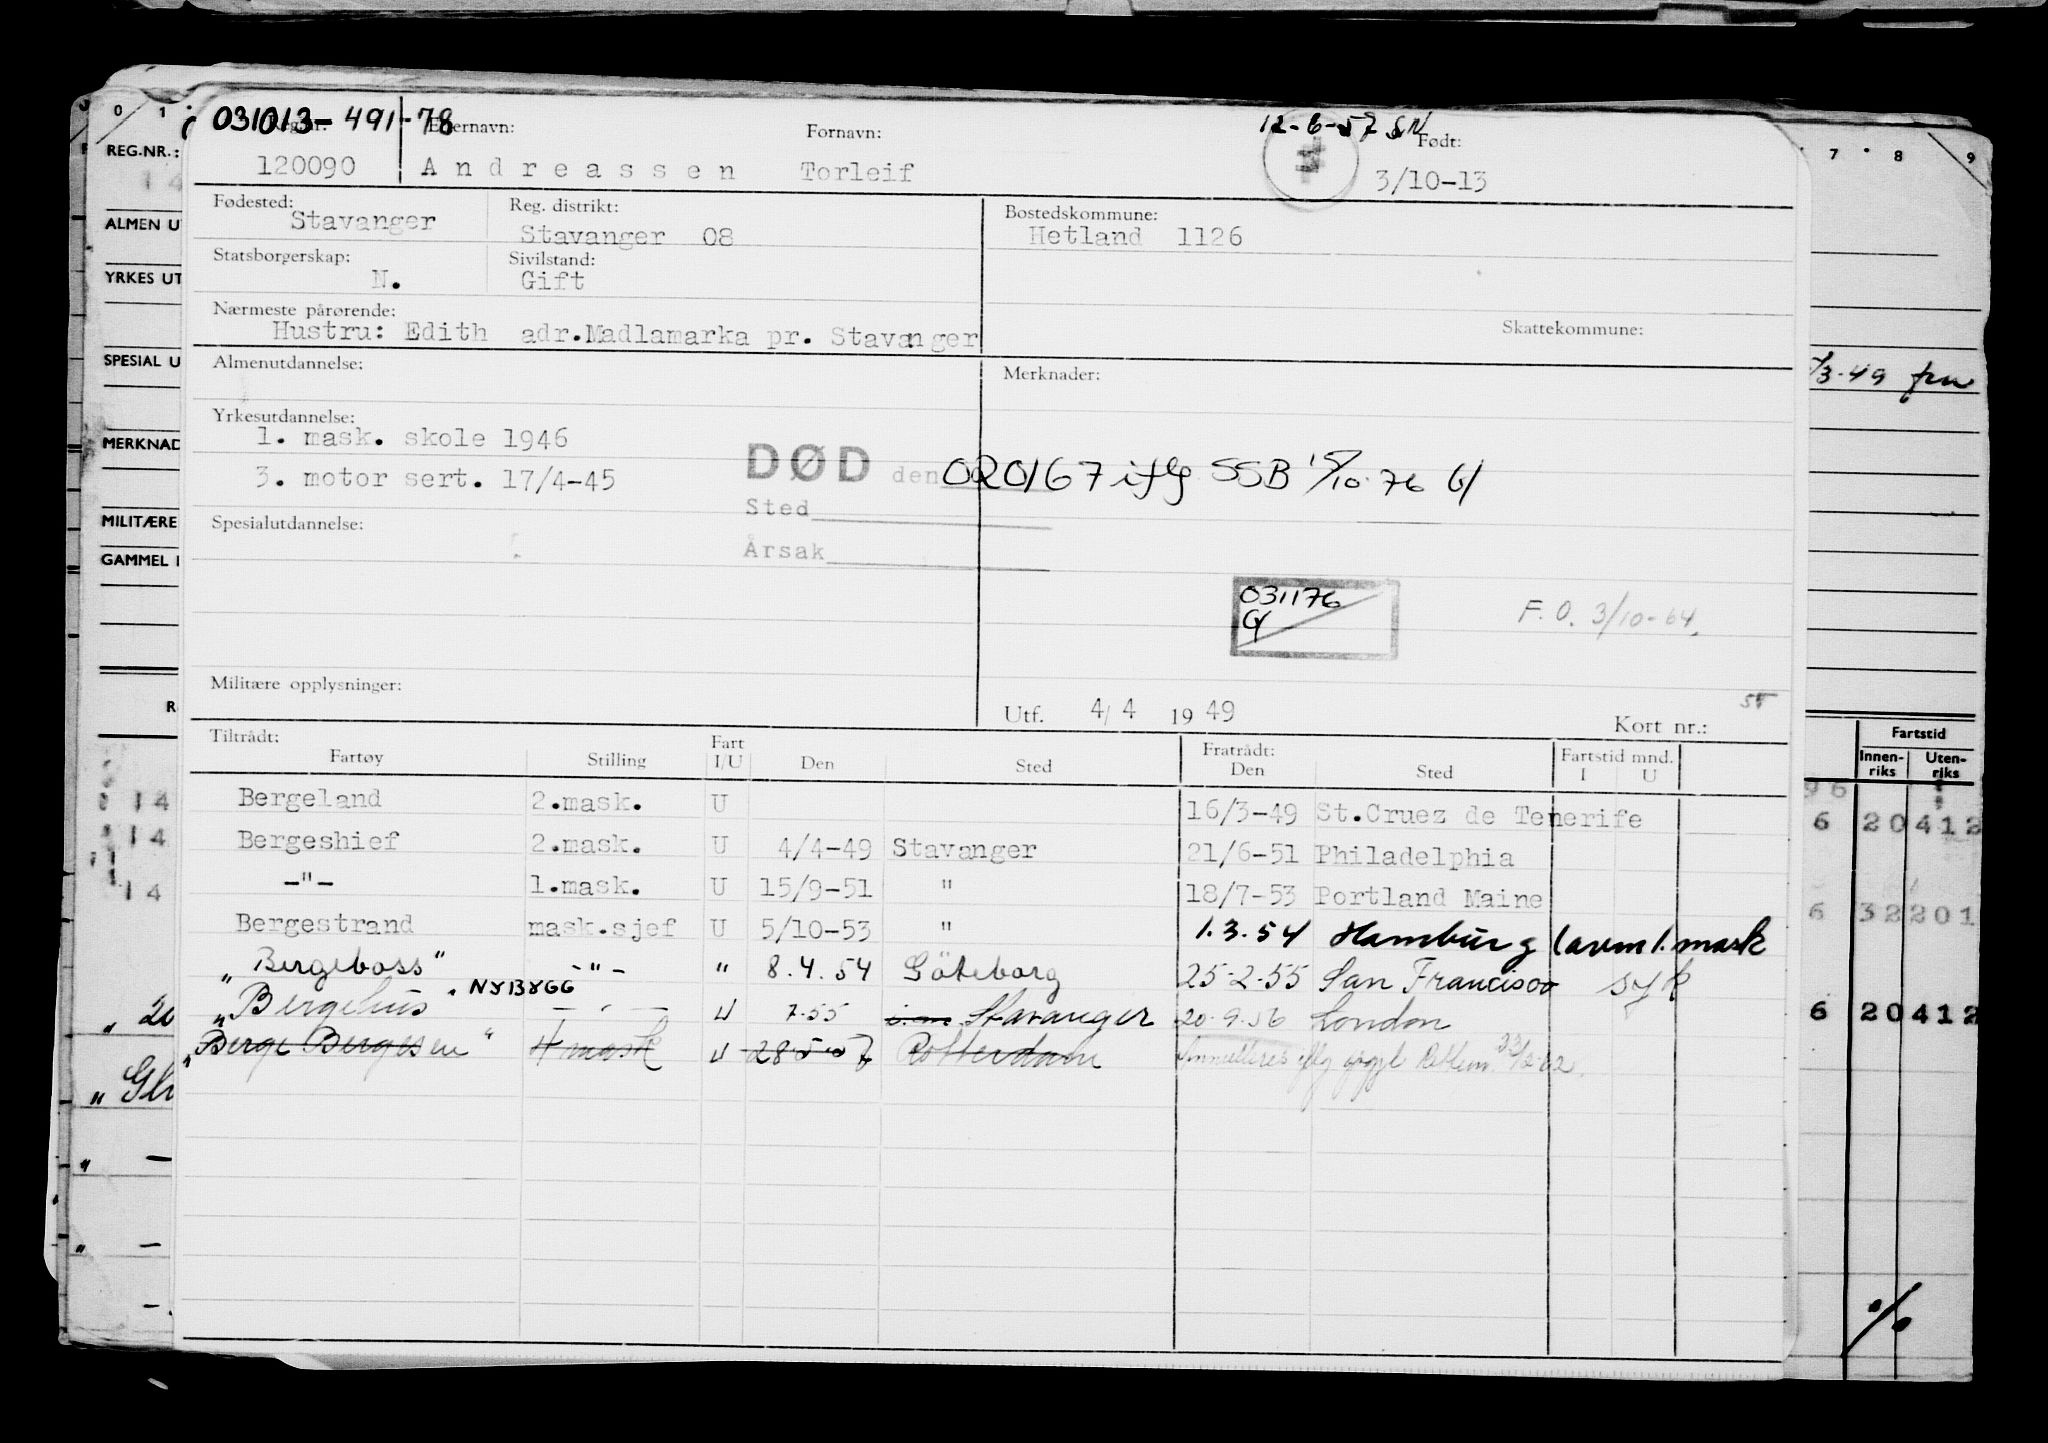 031013-491-78 12-6-57 SN
Reg.nr. Etternavn: Fornavn: Født:
120090 Andreassen Torleif 3/10-13
Fødested: Reg. distrikt: Bostedskommune:
Stavanger Stavanger 08 Hetland 1126
Statsborgerskap: Sivilstand:
N. Gift
Nærmeste pårørende: Skattekommune:
Hustru: Edith adr.Madlamarka pr. Stavanger
Almenutdannelse: Merknader:
Yrkesutdannelse:
1. mask. skole 1946
3. motor sert. 17/4-45
DØD den 020167 iflg SSB 15/10-76 G/
Sted
Årsak
Spesialutdannelse:
031176
G/
F.O. 3/10-64.
Militære opplysninger:
Utf. 4/4 1949 Kort nr.:
Tiltrådt: Fart Fratrådt: Fartstid mnd.
Fartøy Stilling I/U Den Sted Den Sted I U
Bergeland 2.mask. U 16/3-49 St.Cruez de Tenerife
Bergeshief 2.mask. U 4/4-49 Stavanger 21/6-51 Philadelphia
-"- 1.mask. U 15/9-51 " 18/7-53 Portland Maine
Bergestrand mask.sjef U 5/10-53 " 1.3.54 Hamburg (avm 1. mask
"Bergeboss" -"- " 8.4.54 Göteborg 25-2-55 San Francisco syk
"Bergehus NYBYGG — " — U 7.55 Stavanger 20-9.56 London
"Berge Bergesen" 4 mask U 28-5-57 Rotterdam Annulleres iflg oppgj. 23/2-62.
0 1
REG.NR.:
14
ALMEN UT
YRKES UT
SPESIAL U
MERKNAD
MILITÆRE
GAMMEL
R
14
14
14
" 20
" Gl
" —
" —
—.
7 8 9
/3-49 fra
Fartstid
Innen-riks Uten-riks
96
6 20412
6 32201
6 20412